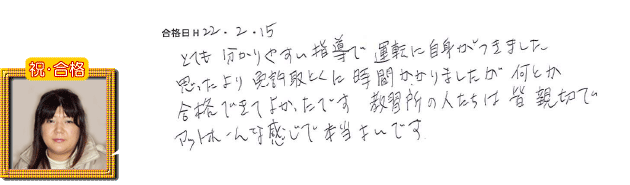 合格日 H 22・2・15
とても分かりやすい指導で運転に自身がつきました
思ったより免許取とくに時間がかかりましたが何とか
祝・合格
合格できてよかったです 教習所の人たちは皆親切で
アットホームな感じで本当